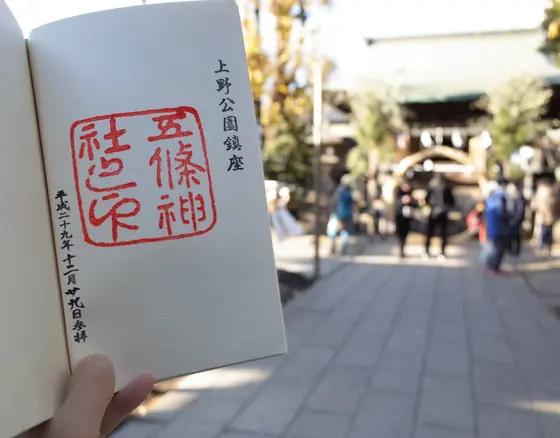 上野公園鎮座
五條神
社之印
平成二十九年十二月廿九日参拝